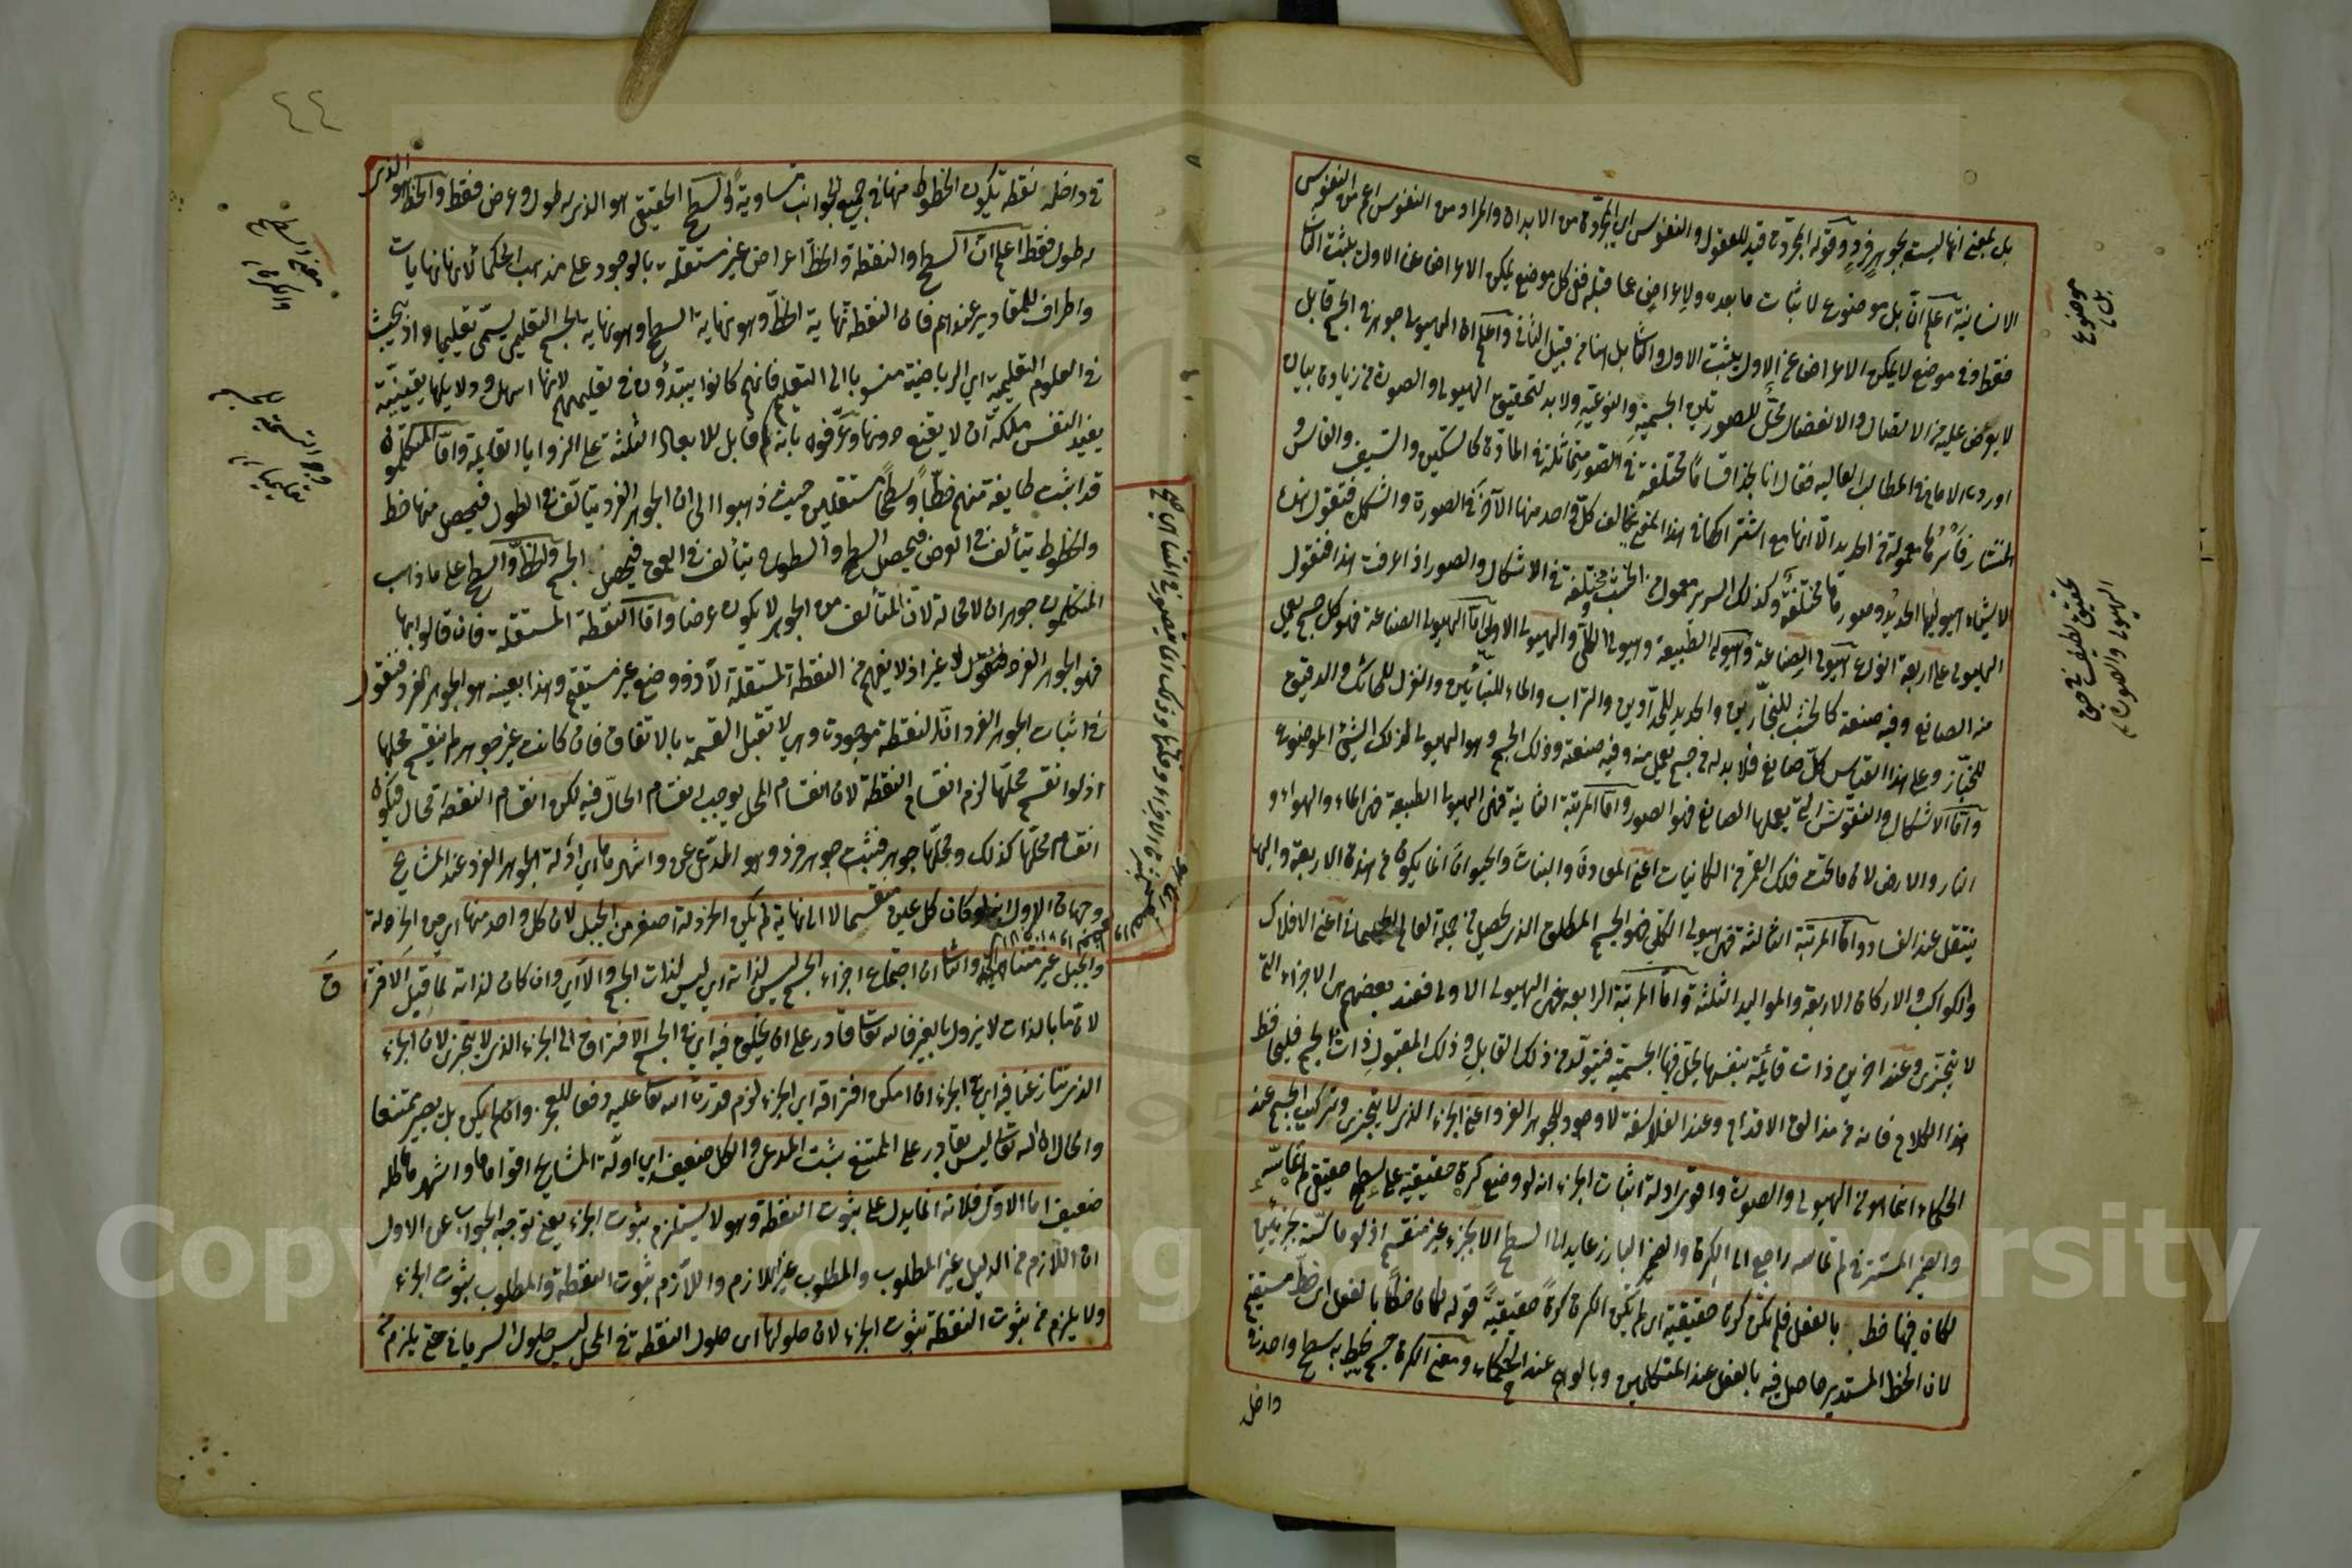 بل بمعنى انها ليست بجوهر فرد وقوله المجردة قيد للعقول والنفوس اي المجردة من الابدان والمراد من النفوس اعم من النفوس
الانسانية اعلم ان بل موضوع لاثبات ما بعده وللاعراض عما قبله ففي كل موضع يمكن الاعراض عن الاول يثبت الثاني
فقط وفي موضع لا يمكن الاعراض عن الاول يثبت الاول والثاني بل هنا من قبيل الثاني واعلم ان الهيولى جوهر في الجسم قابل
لما يعرض عليه من الاتصال والانفصال محل للصورتين الجسمية والنوعية ولا بد لتحقيق الهيولى والصورة من زيادة بيان
اورده الامام في المطالب العالية فقال انا نجد اقساما مختلفة في الصور متماثلة في المادة كالسكين والسيف والفاس و
المنشار فانها معمولة من الحديد الا انها مع اشتراكها في هذا المعنى يخالف كل واحد منها الآخر في الصورة والشكل فنقول هذه
الاشياء هيوليها الحديد وصورها مختلفة وكذلك السرير معمول من الخشب مختلفة في الاشكال والصور اذا عرفت هذا فنقول
الهيولى على اربعة انواع هيولى الصناعة وهيولى الطبيعة وهيولى الكل والهيولى الاولى اما الهيولى الصناعة فهو كل جسم يعمل
منه الصانع وفيه صنعته كالخشب للنجارين والحديد للحدادين والتراب والماء للبنائين والغزل للحائك والدقيق
للخباز وعلى هذا القياس كل صانع فلا بد له من جسم يعمل منه وفيه صنعته وذلك الجسم هو الهيولى لذلك الشيء الموضوع
واما الاشكال والنقوش التي يعملها الصانع فهو الصور واما المرتبة الثانية فهي الهيولى الطبيعة فهي الماء والهواء و
النار والارض لان ما تحت فلك القمر من الكائنات اعني المعادن والنبات والحيوان انما يتكون من هذه الاربعة واليها
ينتقل عند الفساد واما المرتبة الثالثة فهي هيولى الكل فهو الجسم المطلق الذي يحصل من جملة العالم الجسماني اعني الافلاك
والكواكب والاركان الاربعة والمواليد الثلثة واما المرتبة الرابعة فهي الهيولى الاولى فعند بعضهم هي الاجزاء التي
لا يتجزى وعند آخرين ذات قائمة بنفسها يحل فيها الجسمية فيتولد من ذلك القابل وذلك المقبول ذات الجسم فليحافظ
هذا الكلام فانه من مزالق الاقدام وعند الفلاسفة لا وجود للجوهر الفرد اعني الجزء الذي لا يتجزى وتركيب الجسم عند
الحكماء انما هو من الهيولى والصورة واقوى ادلة اثبات الجزء انه لو وضع كرة حقيقية على سطح حقيقي لم تماسه
والضمير المستتر في لم تماسه راجع الى الكرة والضمير البارز عايد الى السطح الا بجزء غير منقسم اذ لو ماسته بجزئين
لكان فيها خط بالفعل فلم تكن كرة حقيقية اي لم تكن الكرة كرة حقيقية قوله لكان خطا بالفعل اي خط مستقيم
لان الخط المستدير حاصل فيه بالفعل عند المتكلمين وبالوهم عند الحكماء ومعنى الكرة جسم يحيط به سطح واحد في
داخل
بل
موضوع
تحقيق لطيف في حق
الهيولى والصورة
٤٤
في داخله نقطة يكون الخطوط منها في جميع الجوانب متساوية والسطح الحقيقي هو الذي له طول وعرض فقط والخط هو الذي
له طول فقط اعلم ان السطح والنقطة والخط اعراض غير مستقلة بالوجود على مذهب الحكماء لانها نهايات
واطراف للمقادير عندهم فان النقطة نهاية الخط وهو نهاية السطح وهو نهاية الجسم التعليمي يسمى تعليميا اذ يبحث
في العلوم التعليمية اي الرياضية منسوبا الى التعليم فانهم كانوا يبتدؤن في تعليمهم لانها اسهل ودلايلها يقينية
يفيد النفس ملكة ان لا يقنع دونها وعرفوه بانه كم قابل للابعاد الثلثة على الزوايا القايمة واما المتكلمون
قد اثبت طايفة منهم خطا وسطحا مستقلين حيث ذهبوا الى ان الجوهر الفرد يتألف في الطول فيحصل منها خط
والخطوط يتألف في العرض فيحصل السطح والسطوح يتألف في العمق فيحصل الجسم والخط والسطح على ما ذهب
المتكلمون جوهران لا محالة لان المتألف من الجوهر لا يكون عرضا واما النقطة المستقلة فان قالوا بها
فهو الجوهر الفرد لا غير اذ لا يفهم من النقطة المستقلة الا ذو وضع غير مستقيم وهذا بعينه هو الجوهر الفرد فنقول
في اثبات الجوهر الفرد ان النقطة موجودة وهي لا تقبل القسمة بالاتفاق فان كانت غير جوهر لم ينقسم محلها
اذ لو انقسم محلها لزم انقسام النقطة لان انقسام المحل يوجب انقسام الحال فيه لكن انقسام النقطة محال فيكون
انقسام محلها كذلك ومحلها جوهر فثبت جوهر فرد وهو المدعى واشهرها اي ادلة الجوهر الفرد عند المشايخ
وجهان الاول انه لو كان كل عين منقسما لا الى نهاية لم يكن الخردلة اصغر من الجبل لان كل واحد منها اي من الخردلة
والجبل غير متناهي والثاني ان اجتماع اجزاء الجسم ليس لذاته اي ليس لذات الجسم والا اي وان كان لذاته لما قبل الافتراق
لان ما بالذات لا يزول بالغير فالله تعالى قادر على ان يخلق فيه اي في الجسم الافتراق الى الجزء الذي لا يتجزى لان الجزء
الذي تنازعنا فيه اي في الجزء ان امكن افتراقه اي الجزء لزم قدرة الله تعالى عليه دفعا للعجز وان لم يمكن بل يصير ممتنعا
والحال ان الله تعالى ليس بقادر على الممتنع يثبت المدعى والكل ضعيف اي ادلة المشايخ اقواها واشهرها كله
ضعيف اما الاول فلانه انما يدل على ثبوت النقطة وهو لا يستلزم ثبوت الجزء يعني توجيه الجواب عن الاول
ان اللازم من الدليل غير المطلوب والمطلوب غير اللازم واللازم ثبوت النقطة والمطلوب ثبوت الجزء
ولا يلزم من ثبوت النقطة ثبوت الجزء لان حلولها اي حلول النقطة في المحل ليس حلول السرياني حتى يلزم من
معنى السطح
والكرة
وجه التسمية
تعليميا